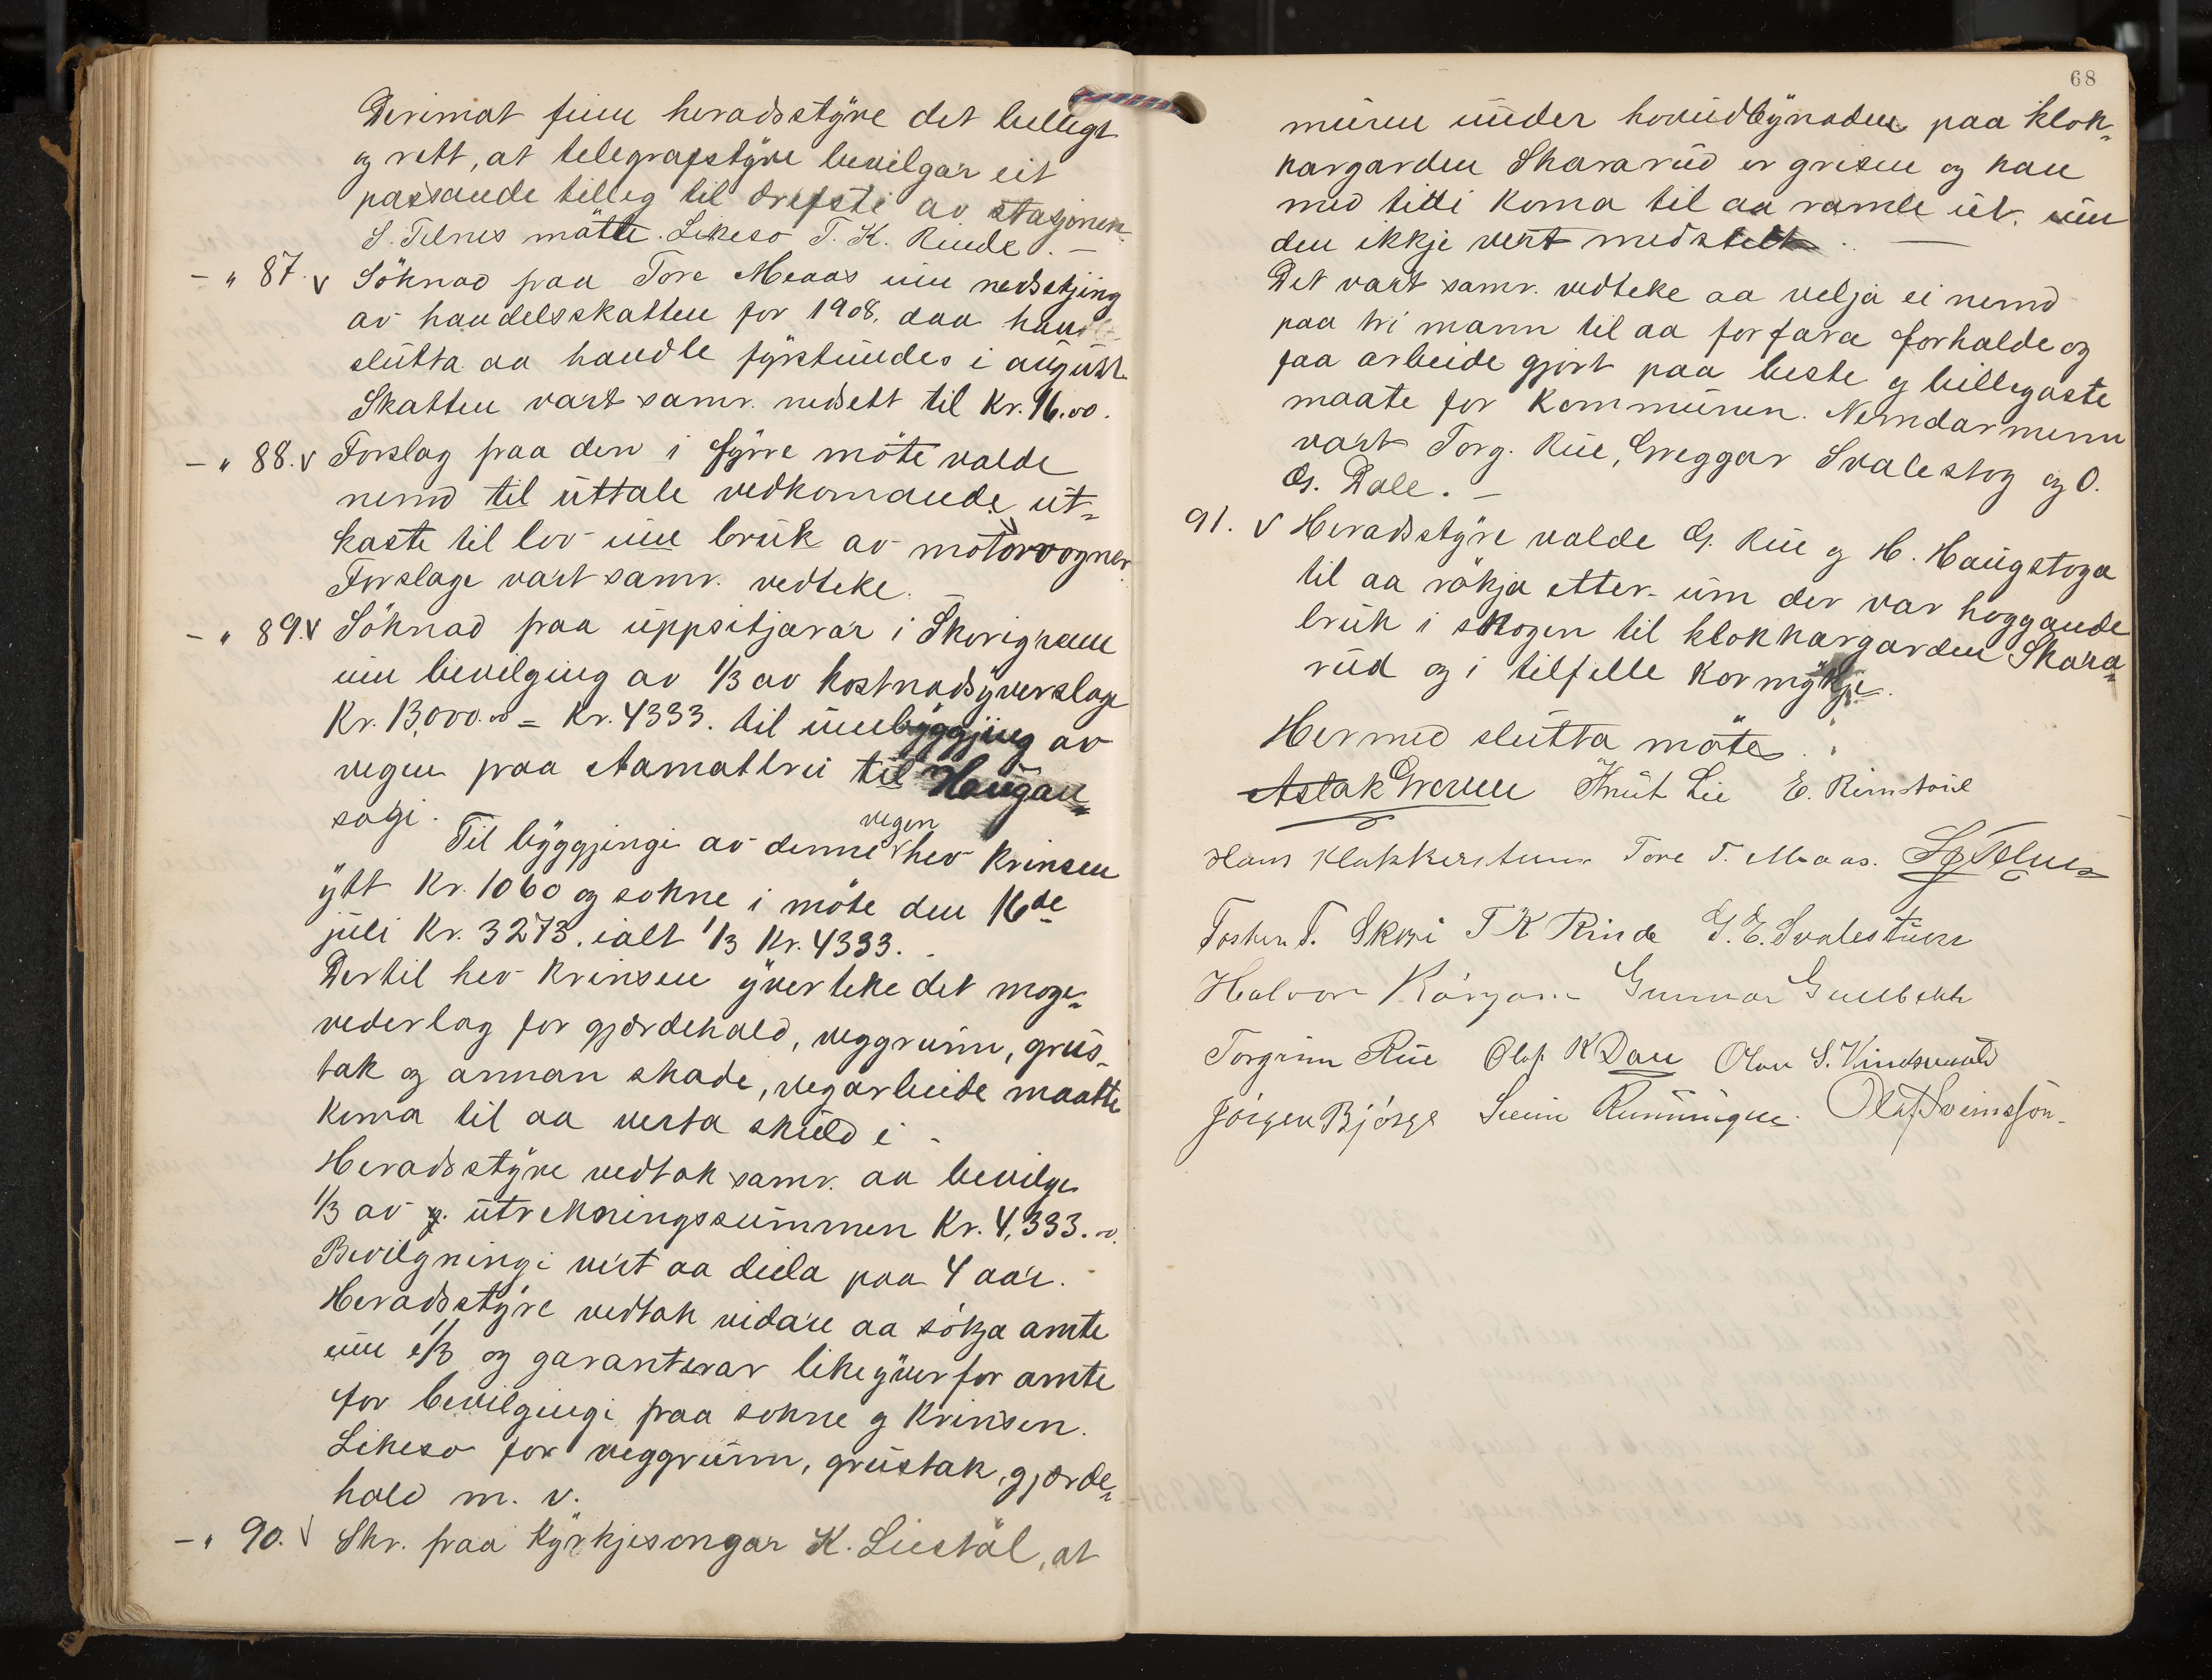 Derimot finn heradsstyre det billegt
og rett, at telegrafstyre bevilgar eit
passande tilleg til drifsti av stasjonen.
S. Telnes mötte. Likeso T. K. Rinde. —
— " 87. v Söknad fraa Tore Meaas um nedsetjing
av handelsskatten for 1908, daa han
slutta aa handle fyrstundes i august.
Skatten vart samr. nedsett til Kr. 16.00.
— " 88. v Forslag fraa den i fyrre möte valde
nemd til uttale vedkomande ut-
kaste til lov um bruk av motorvogner.
Forslage vart samr. vedteke.
— " 89. v Söknad fraa uppsitjarar i Skorigrenn
um bevilging av 1/3 av kostnadsyverslage
Kr. 13,000.00 = Kr. 4333. til umbyggjing av
vegen fraa Aamotbrui til Haugan-
sagi.
Til byggjingi av denne vegen hev Krinsen
ytt Kr. 1060 og sokne i möte den 16de
juli Kr. 3273. ialt 1/3 Kr. 4333.
Dertil hev Krinsen yverteke det moge-
vederlag for gjerdehald, veggrunn, grus-
tak og annan skade, vegarbeide maatte
koma til aa verta skuld i.
Heradsstyre vedtok samr. aa bevilge
1/3 av utrekningssummen Kr. 4,333.00.
Bevilgningi vert aa deela paa 4 aar.
Heradsstyre vedtok vidare aa sökja amte
um 1/3 og garanterar likeyver for amte
for bevilgingi fraa sokne og Krinsen.
Likeso for veggrunn, grustak, gjerde-
hald m. v.
— " 90. v Skr. fraa Kyrkjesongar K. Liestöl, at
68
muren under hovudbygnaden paa klok-
kargarden Skararud er grisen og kan
med tidi koma til aa ramle ut. um
den ikkje vert medstelt. —
Det vart samr. vedteke aa velja ei nemd
paa tri mann til aa forfara forholde og
faa arbeide gjort paa beste og billegaste
maate for kommunen. Nemdarmenn
vart Torg. Rue, Greggar Svalestog og O.
G. Dale. —
91. v Heradsstyre valde G. Rue og H. Haugstoga
til aa rökja etter um der var hoggande
bruk i skogen til klokkargarden Skara-
rud og i tilfelle kor mykje.
Hermed slutta möte.
Aslak Graver Knut Lie E. Rimstoül
Hans Klokkerstuen Tore T. Meaas. S. Telnes
Tosten T. Skori T K Rinde G. E. Svalestuen
Halvor Gunnar Gullbekk
Torgrim Rue Olof K Dau Olav S.
Jörgen Björge Svein Olaf Sveinsson